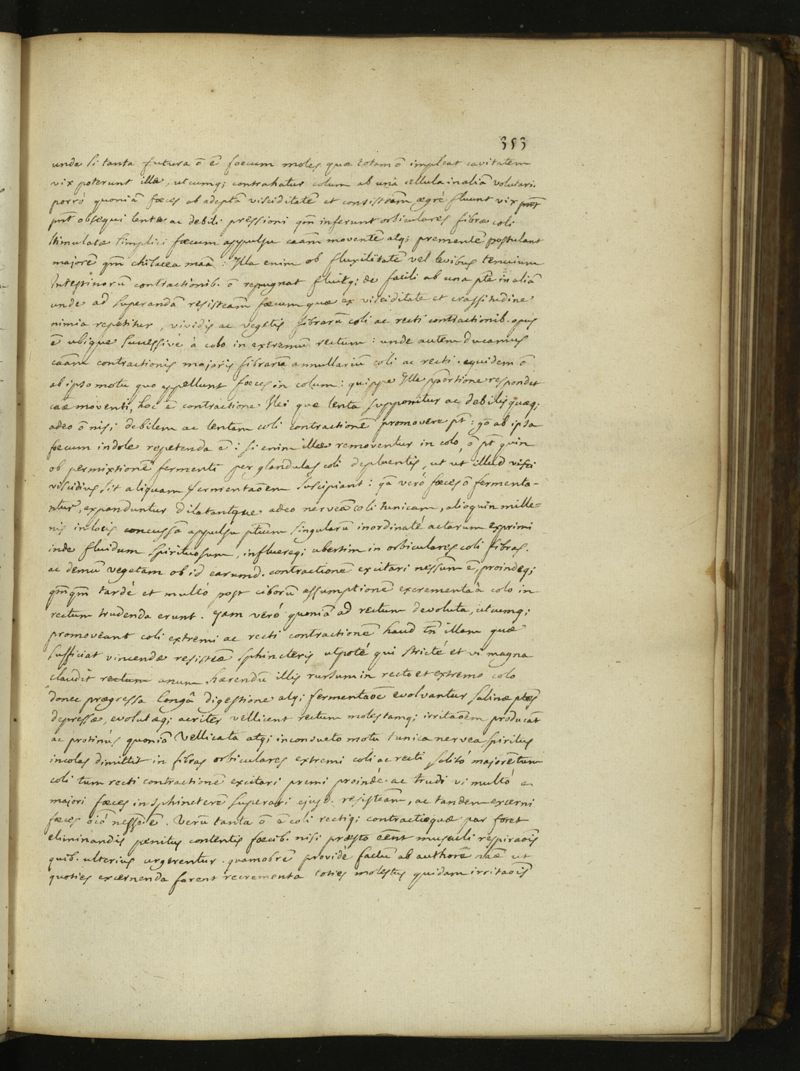 353
unde si tanta futura ō ē fœcum moles quæ totam ō impleat cavitatem
vix poterunt illæ, utcumq; contrahatur colum ab una cellula in aliā volutari.
porró quoniā fœces ob adeptā visciditatē et consisteam̄ ægré fluent vix
pn̄t obsequi lentæ ac debili pressioni qm̄ inferunt orbiculares fibræ coli
stimulatæ simplici fœcum appulsu caām moventē atq; prementē postulant
majorē qm̄ chilacea maā : Illa enim ob fluxilitatē vel levibus tenuium
Intestinorū contractionib. ō repugnat fluitq; de facili ab una pte in aliā
unde ad superandā resisteam̄ fœcum quæ ex visciditate et crassitudine
nimia repetitur, vividis ac vegetis fibrarū coli ac recti contractionib. opus
ē ubique successive á colo in extremū rectum : unde autem ducamus
caām contractionis majoris fibrarū annullariū coli ac recti . equidem ō
ab ipso motu quo appellunt fœces in colum : quippe Ille pportione respondet
caæ moventi, hoc ē contractione Ilei quæ lenta supponitur ac debilis quæq;
adeo ō nisi debilem ac lentam coli contractionē promovere pt : gō ab ipsa
fœcum indole repetenda ē : si enim illæ removentur in colo, ō pt quin
ob permixtionē fermenti per glandulas coli depluentis, ut ut illud
viscidius sit aliquam fermentaōem suscipiant : qā veró fœces ō fermenta-
ntur, expanduntur dilatantque adeo nerveā coli tunicam, alioquin mille-
nis in locis concussā appulsu ptium singularū inordinaté actarum exprimi
inde fluidum spirituosum, influereq; ubertim in orbiculares coli fibras.
ac demū vegetam ob id earumd. contractionē excitari nessum ē, proindeq;
qm̄qm̄ tardé et multó post ciborū assumptionē excrementa á colo in
rectum trudenda erunt . Jam veró quoniā ad rectum devoluta, utcumq;
promoveant coli extremi ac recti contractionē haud tn̄ illam quæ
sufficiat vincendæ resisteæ sphincteris utpoté qui stricté et vi magna
claudit rectum anum hærendū illis rursum in recto et extremo colo
donec prægressa longā digestione atq; fermentaōe evolvantur salinæ ptes
depressæ, evolutæq; acriter vellicent rectum molestamq; irritaōem producāt
ac protinús quoniā vellicata atq; inconsueto motu tunica nervea spiritus
incolas dimittit in fibras orbiculares extremi coli ac recti solitó majorē tum
coli tum recti contractionē excitari premi proindé ac trudi vi multó
majori fœces in sphincterē superari ejusd. resisteam, ac tandem excerni
fœces oīō nesse ē . Verū tanta ō ē coli rectiq; contractio quæ par foret
eliminandis pœnitus contentis fœcib. nisi præsto eēnt musculi respiraōis
quib. ulterius urgerentur . quamobrē providé factū ab authore naæ ut
quoties excernenda forent recrementa toties molestus quidam irritaōis